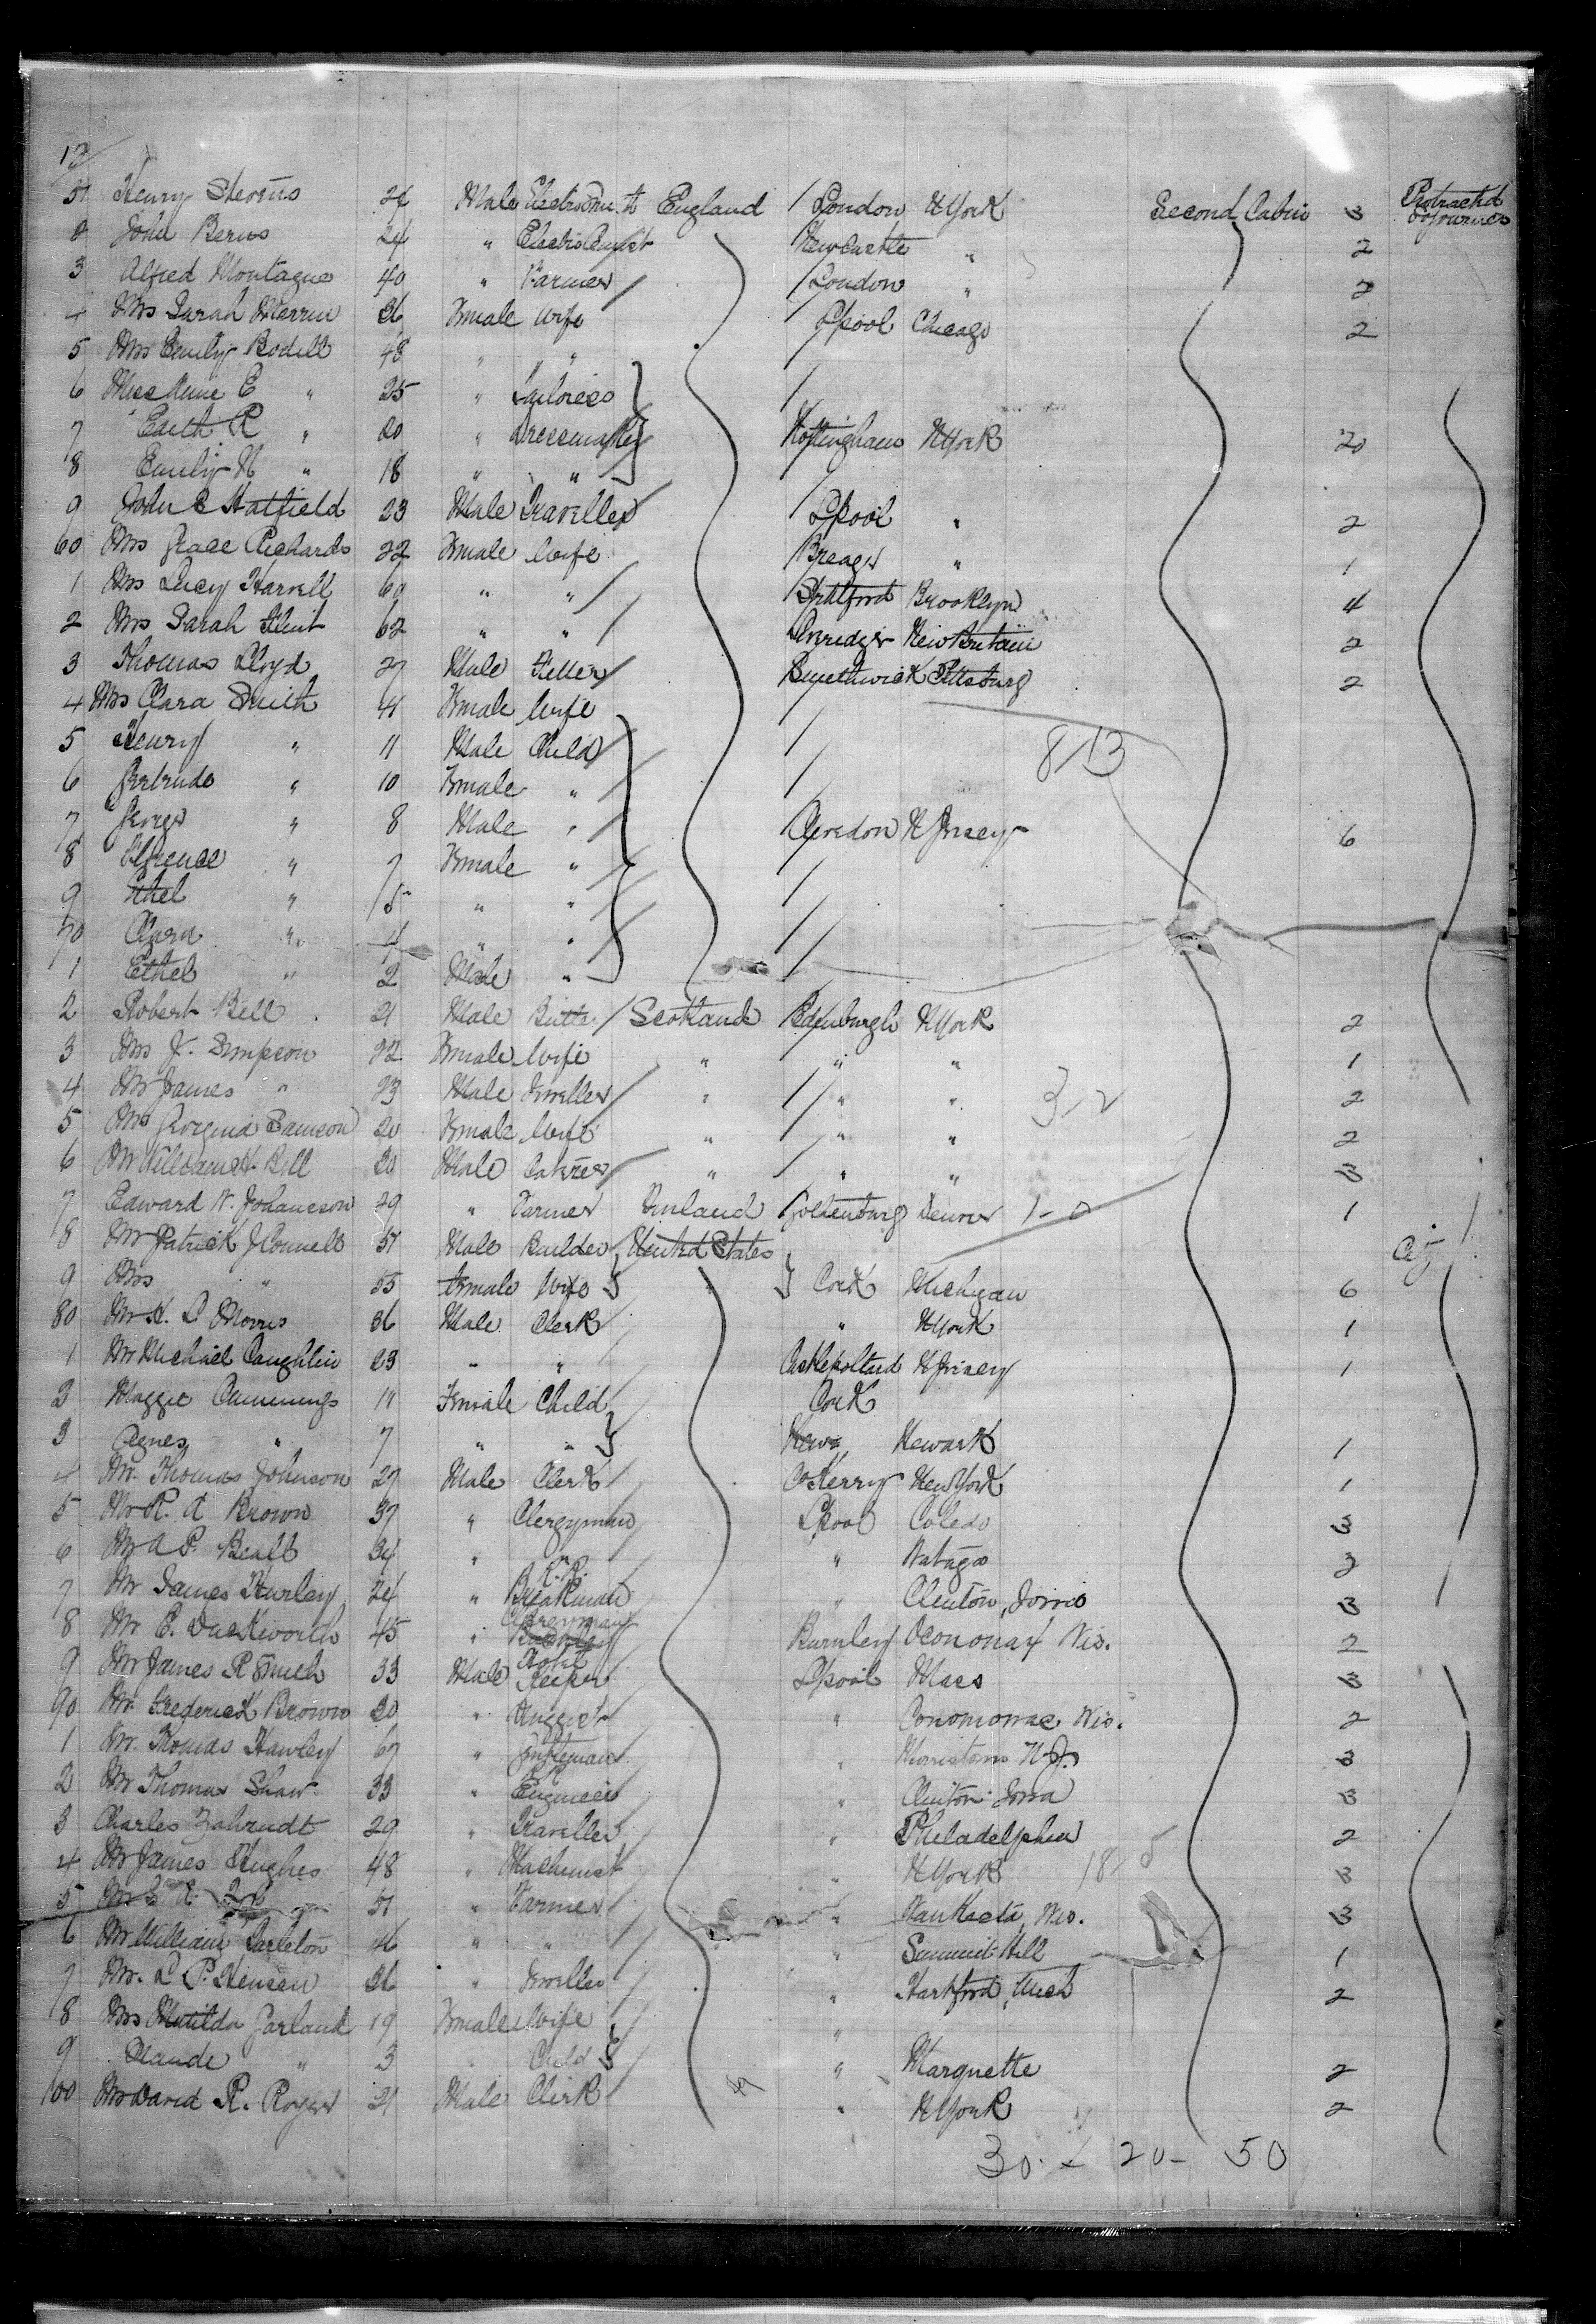 13/
51 Henry Stevens 24 Male England London N York Second Cabin 3 Protracted sojourner
2 John 24 " Newcastle " 2
3 Alfred Montague 40 " Farmer London " 2
4 Mrs Sarah 26 Female Wife Lpool Chicago 2
5 Mrs Emily Bodell 48 " "
6 Miss Annie E " 25 " Tailoress
7 " Edith R " 20 " Dressmaker Nottingham N York 20
8 Emily N " 18 " "
9 John C Hatfield 23 Male Traveller Lpool " 2
60 Mrs Grace Richards 22 Female Wife Breage " 1
1 Mrs Lucy Harvell 60 " " Stratford Brooklyn 4
2 Mrs Sarah Flint 62 " " New Britain 2
3 Thomas Lloyd 27 Male Smethwick Pittsburg 2
4 Mrs Clara Smith 41 Female Wife
5 Henry " 11 Male Child 8-13
6 Gertrude " 10 Female "
7 George " 8 Male " Clevedon N Jersey 6
8 Florence " 7 Female "
9 Ethel " 5 " "
70 Clara " 4 " "
1 Ethel " 2 Male "
2 Robert Bell 21 Male Scotland Edinburgh N York 2
3 Mrs J. Simpson 22 Female Wife " " " 1
4 Mr James " 23 Male Jeweller " " " 3-2 2
5 Mrs Georgina Samson 20 Female Wife " " " 2
6 Mr William H. Bell 30 Male " " " 3
7 Edward N. Johanson 29 " Farmer Finland Gothenburg Denver 1-0 1
8 Mr Patrick J Connell 51 Male Builder United States
9 Mrs " 55 Female Wife " Cork Michigan 6
80 Mr H. D Morris 36 Male Clerk " N York 1
1 Mr Michael Caughlin 23 " " Castlepollard N Jersey 1
2 Maggie Cummings 11 Female Child Cork
3 Agnes " 7 " " Newark 1
4 Mr. Thomas Johnson 27 Male Clerk Co Kerry New York 1
5 Mr R. A Brown 37 " Clergyman Lpool Toledo 3
6 Mr A P. 34 " " 2
7 Mr James Hurley 24 " R.R. Breakman " Clinton, 3
8 Mr C. Duckworth 45 " Clergyman Burnley Wis. 2
9 Mr James R Smith 33 Male Hotel Keeper Lpool Mass 3
90 Mr. Frederick Brown 30 " " Wis. 2
1 Mr. Thomas Hawley 67 " Gentleman " Morristown N.J. 3
2 Mr Thomas Shaw 33 " R R Engineer " Clinton Iowa 3
3 Charles Zahrndt 29 " Traveller " Philadelphia 2
4 Mr James Hughes 48 " Machinist " N York 18-5 3
5 51 " Farmer " Wis. 3
6 Mr William Tarleton 46 " " " Summit Hill 1
7 Mr. L P. Hensen 36 " Jeweller " Hartford, Mich 2
8 Mrs Matilda Garland 19 Female Wife "
9 Claude " 3 Child " Marquette 2
100 Mr David R. Rogers 21 Male Clerk " N York 2
30 - 20 - 50